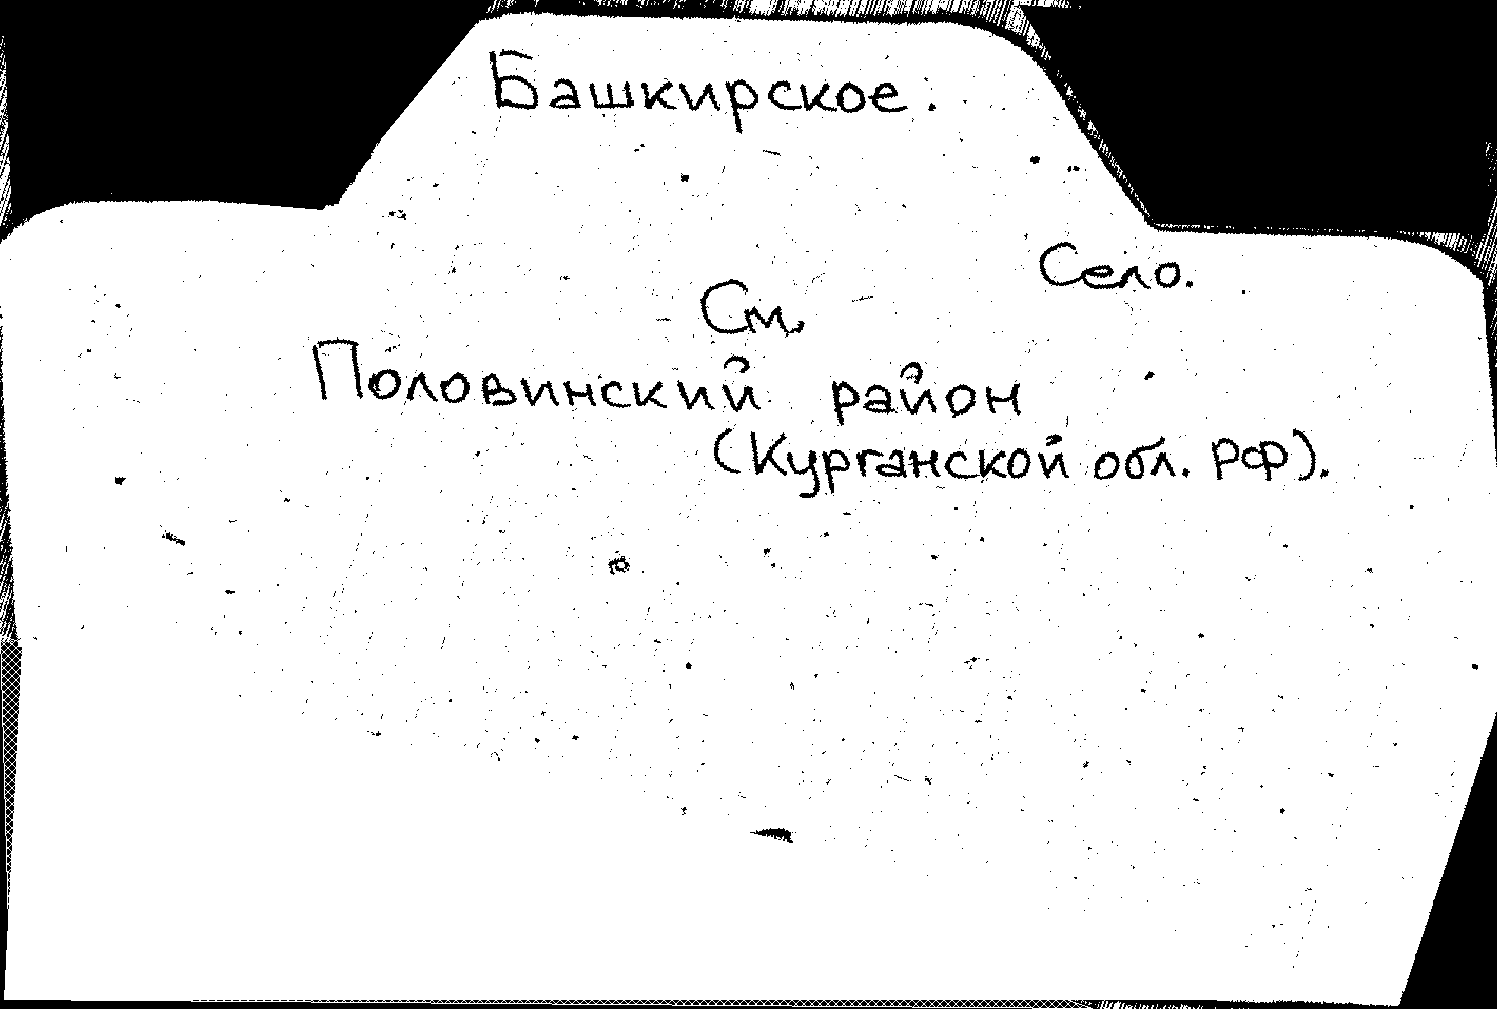 Башкирское.
Село.
См.
Половинский район
(Курганской обл. РФ).